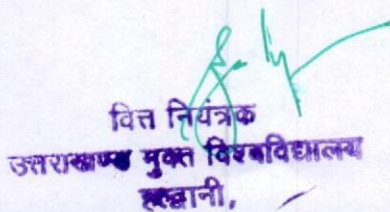 वित्त नियंत्रक
उत्तराखण्ड मुक्त विश्वविद्यालय
हल्द्वानी,